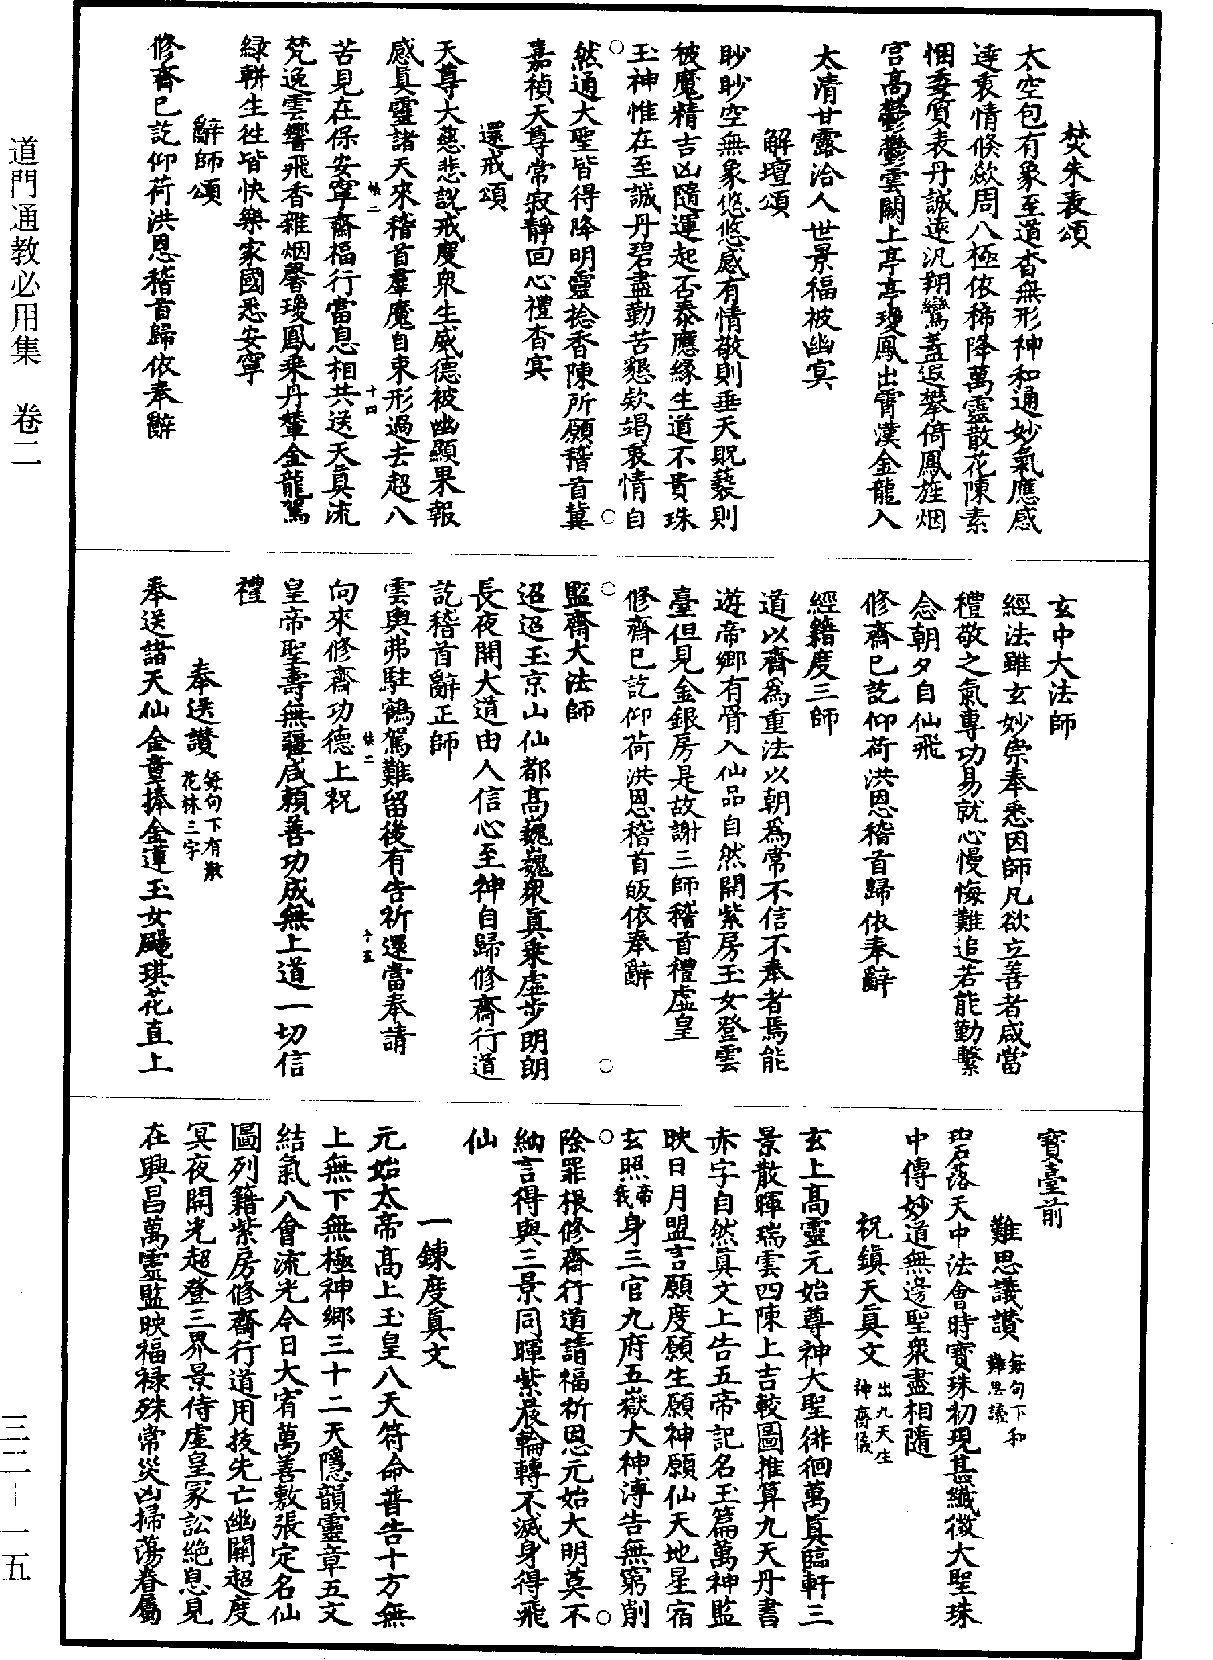 道門通教必用集　卷二
三二—一五
焚朱表頌
太空包有象至道杳無形神和通妙氣應感
達衷情倏欻周八極依稀降萬靈散花陳素
悃委質表丹誠遠汎翔鸞蓋返攀倚鳳旌烟
宮高鬱鬱雲闕上亭亭瓊鳳出霄漢金龍入
太清甘露洽人世景福被幽冥
解壇頌
眇眇空無象悠悠感有情敬則垂天貺褻則
被魔精吉凶隨運起否泰應緣生道不貴珠
玉神惟在至誠丹碧盡勤苦懇欵竭衷情自
然通大聖皆得降明靈捻香陳所願稽首冀
嘉禎天尊常寂靜回心禮杳冥
還戒頌
天尊大慈悲說戒度衆生威德被幽顯果報
感真靈諸天來稽首羣魔自束形過去超八
苦見在保安寧齋福行當息相共送天真流
梵逸雲響飛香雜烟馨瓊鳳乘丹輦金龍駕
綠輧生徃皆快樂家國悉安寧
辭師頌
修齋已訖仰荷洪恩稽首歸依奉辭
十四
玄中大法師
經法雖玄妙崇奉悉因師凡欲立善者咸當
禮敬之氣專功易就心慢悔難追若能勤繫
念朝夕自仙飛
修齋已訖仰荷洪恩稽首歸依奉辭
經籍度三師
道以齋爲重法以朝爲常不信不奉者焉能
遊帝鄉有骨入仙品自然開紫房玉女登雲
臺但見金銀房是故謝三師稽首禮虛皇
修齋已訖仰荷洪恩稽首皈依奉辭
監齋大法師
迢迢玉京山仙都高巍巍衆真乘虛步朗朗
長夜開大道由人信心至神自歸修齋行道
訖稽首辭正師
雲輿弗駐鶴駕難留後有告祈還當奉請
向來修齋功德上祝
皇帝聖壽無疆咸賴善功成無上道一切信
禮
奉送讚每句下有散花林三字
奉送諸天仙金童捧金蓮玉女颺琪花直上
十五
寶臺前
難思議讚每句下和難思議
碧落天中法會時寶珠初現甚纖微大聖珠
中傳妙道無邊聖衆盡相隨
祝鎮天真文出九天生神齋儀
玄上高靈元始尊神大聖徘徊萬真臨軒三
景散暉瑞雲四陳上吉較圖推算九天丹書
赤字自然真文上告五帝記名玉篇萬神監
映日月盟言願度願生願神願仙天地星宿
玄照帝我身三官九府五嶽大神溥告無窮削
除罪根修齋行道請福祈恩元始大明莫不
納言得與三景同暉紫晨輪轉不滅身得飛
仙
一鍊度真文
元始太帝高上玉皇八天符命普告十方無
上無下無極神鄉三十二天隱韻靈章五文
結氣八會流光今日大宥萬善敷張定名仙
圖列籍紫房修齋行道用拔先亡幽關超度
冥夜開光超登三界景侍虛皇冢訟絕息見
在興昌萬靈監映福祿殊常災凶掃蕩眷屬